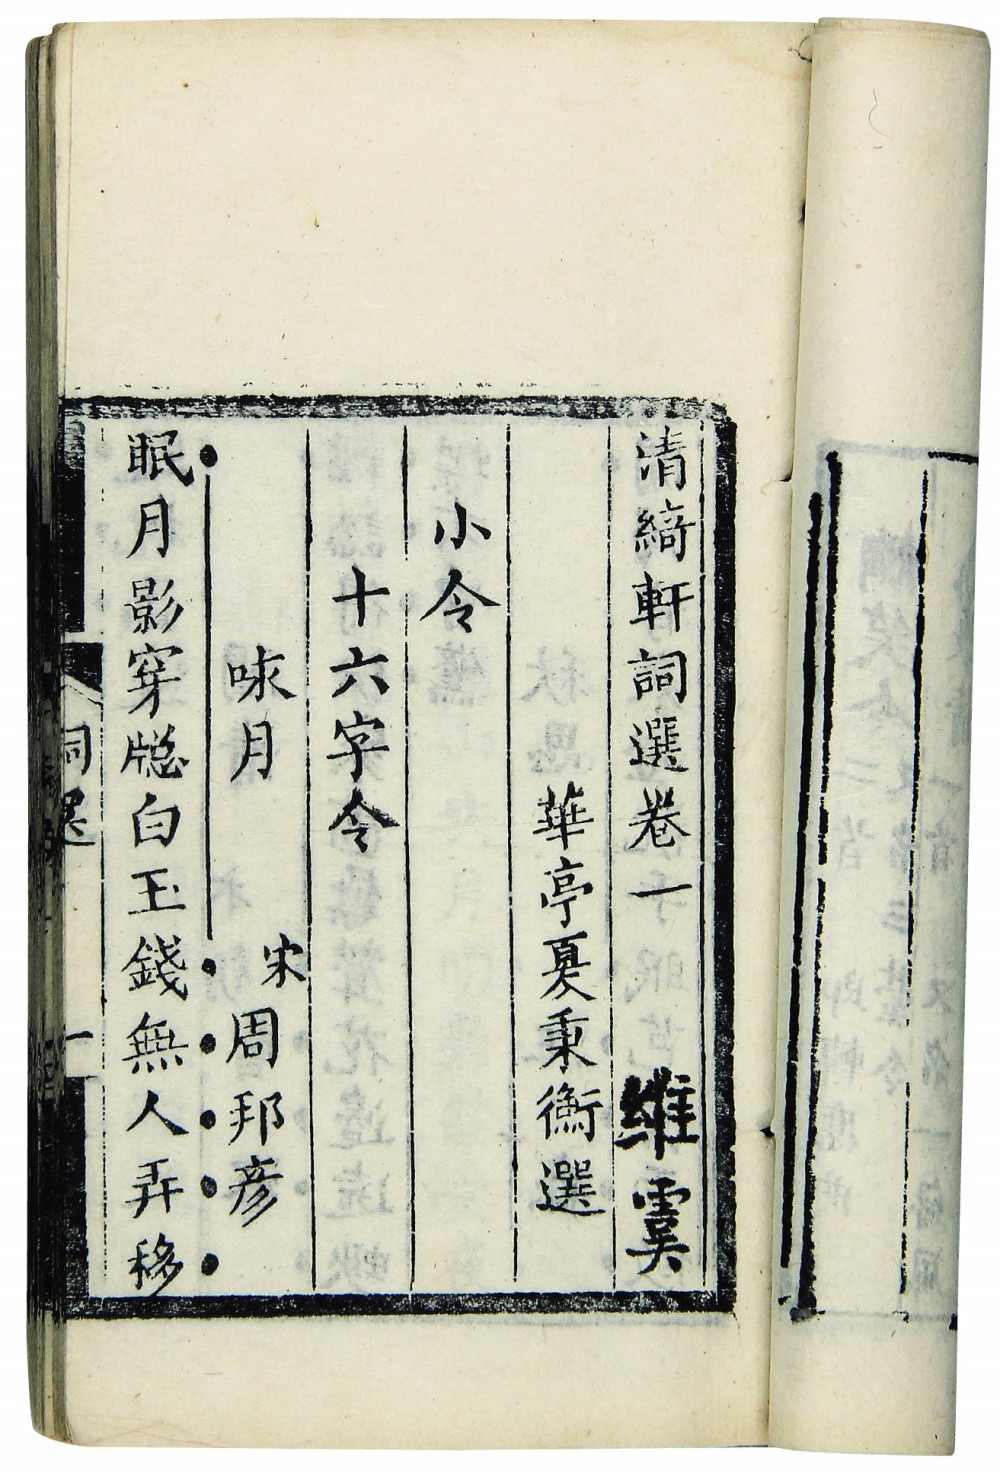 清綺軒詞選卷一 維
華亭夏秉衡選
小令
十六字令
咏月 宋周邦彦
眠月影穿牕白玉錢無人弄移
詞選 一